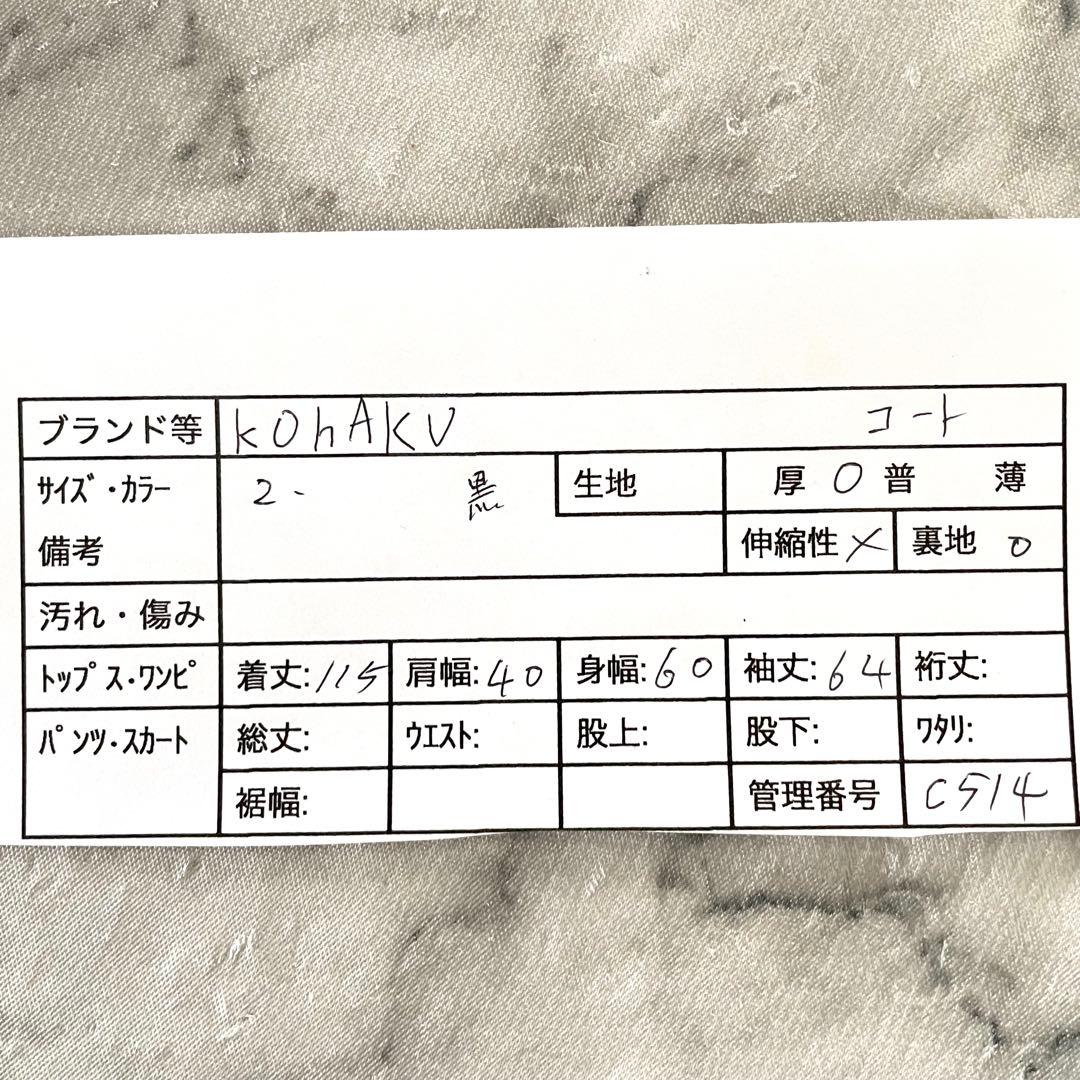 ブランド等 kOhAKU コート
サイズ・カラー 2. 黒 生地 厚 〇 普 薄
備考 伸縮性 × 裏地 〇
汚れ・傷み
トップス・ワンピ 着丈:115 肩幅:40 身幅:60 袖丈:64 裄丈:
パンツ・スカート 総丈: ウエスト: 股上: 股下: ワタリ:
裾幅: 管理番号 C514